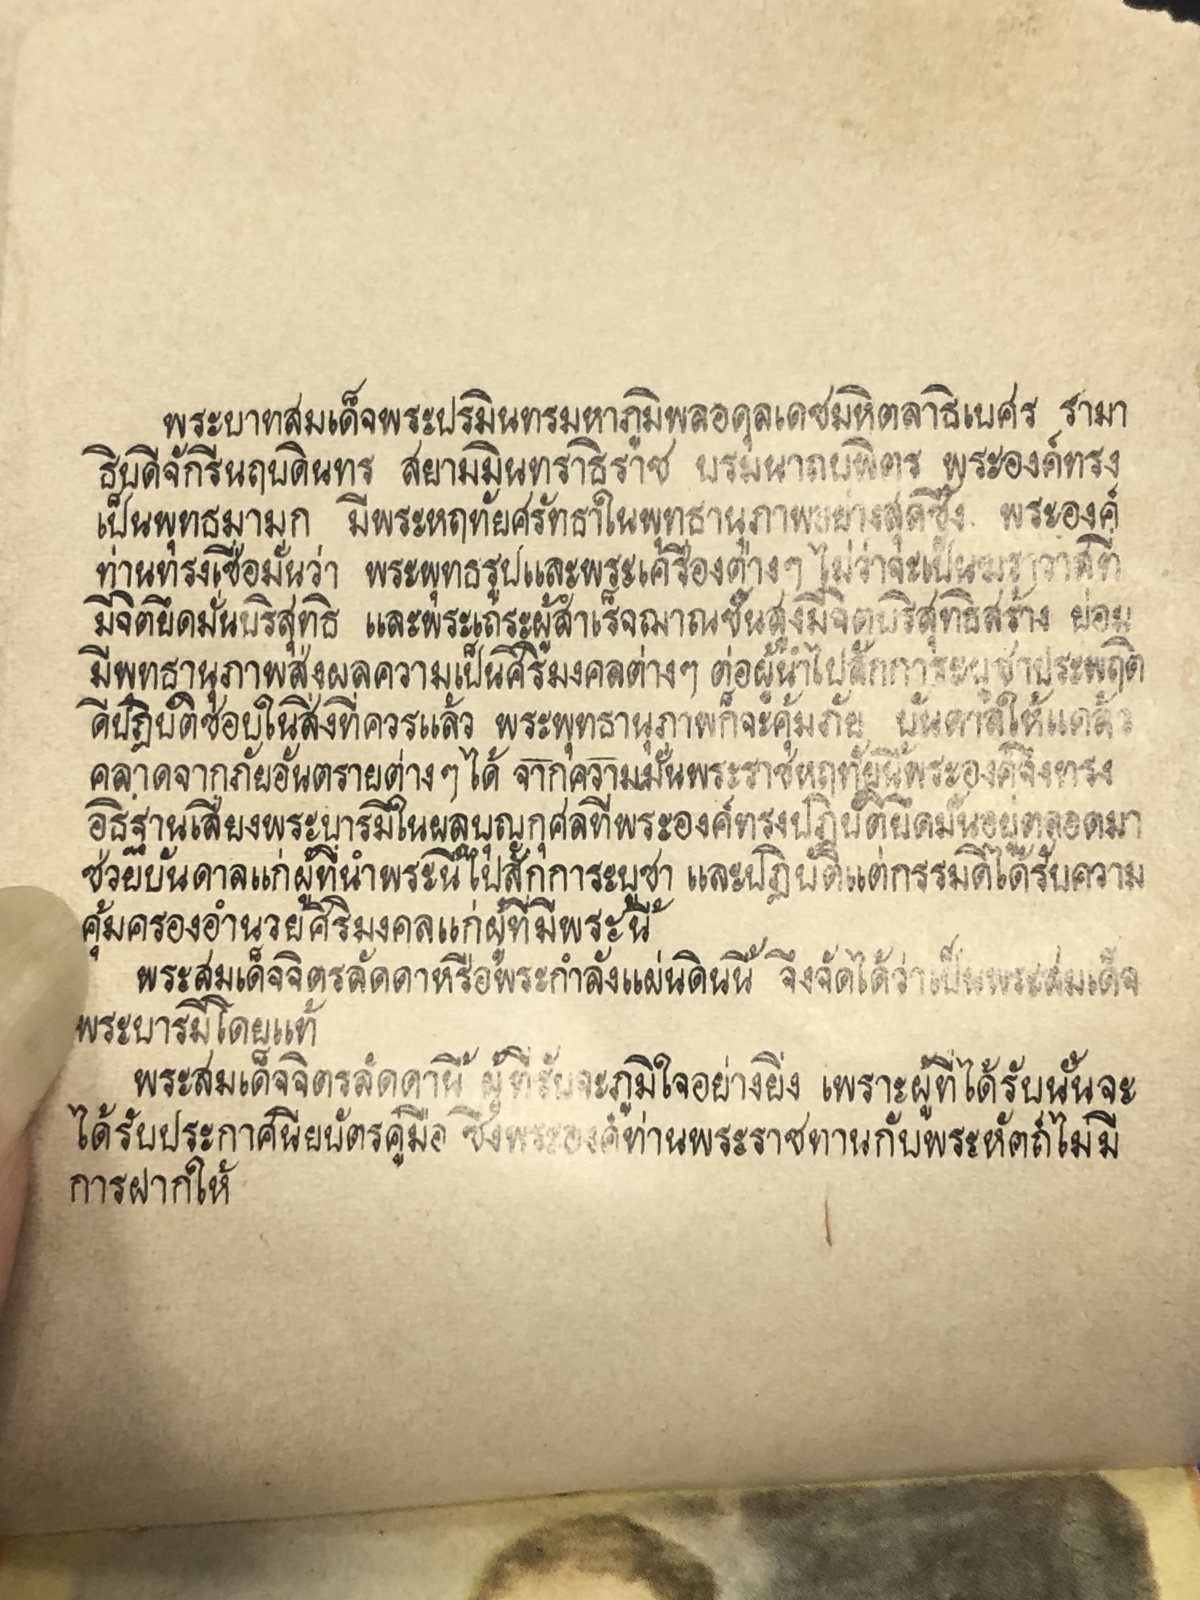 พระบาทสมเด็จพระปรมินทรมหาภูมิพลอดุลเดชมหิตลาธิเบศร รามา
ธิบดีจักรีนฤบดินทร สยามมินทราธิราช บรมนาถบพิตร พระองค์ทรง
เป็นพุทธมามก มีพระหฤทัยศรัทธาในพุทธานุภาพอย่างสุดซึ้ง พระองค์
ท่านทรงเชื่อมั่นว่า พระพุทธรูปและพระเครื่องต่างๆ ไม่ว่าจะเป็นฆราวาสที่
มีจิตยึดมั่นบริสุทธิ และพระเถระผู้สำเร็จฌาณชั้นสูงมีจิตบริสุทธิสร้าง ย่อม
มีพุทธานุภาพส่งผลความเป็นศิริมงคลต่างๆ ต่อผู้นำไปสักการะบูชาประพฤติ
ดีปฏิบัติชอบในสิ่งที่ควรแล้ว พระพุทธานุภาพก็จะคุ้มภัย บันดาลให้แคล้ว
คลาดจากภัยอันตรายต่างๆ ได้ จากความมั่นพระราชหฤทัยนี้พระองค์จึงทรง
อธิฐานเสี่ยงพระบารมีในผลบุญกุศลที่พระองค์ทรงปฏิบัติยึดมั่นอยู่ตลอดมา
ช่วยบันดาลแก่ผู้ที่นำพระนี้ไปสักการะบูชา และปฏิบัติแต่กรรมดีได้รับความ
คุ้มครองอำนวยศิริมงคลแก่ผู้ที่มีพระนี้
พระสมเด็จจิตรลัดดาหรือพระกำลังแผ่นดินนี้ จึงจัดได้ว่าเป็นพระสมเด็จ
พระบารมีโดยแท้
พระสมเด็จจิตรลัดดานี้ ผู้ที่รับจะภูมิใจอย่างยิ่ง เพราะผู้ที่ได้รับนั้นจะ
ได้รับประกาศนียบัตรคู่มือ ซึ่งพระองค์ท่านพระราชทานกับพระหัตถ์ไม่มี
การฝากให้